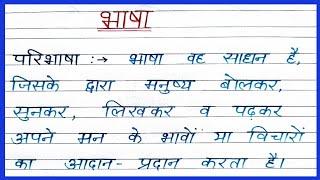 भाषा
परिभाषा :→ भाषा वह साधन है,
जिसके द्वारा मनुष्य बोलकर,
सुनकर, लिखकर व पढ़कर
अपने मन के भावों या विचारों
का आदान-प्रदान करता है।